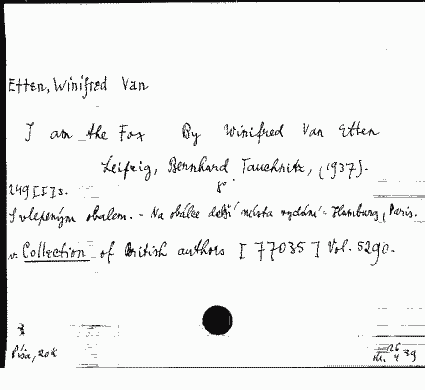 Etten, Winifred Van
I am the Fox By Winifred Van Etten
Leipzig, Bernhard Tauchnitz, (1937).
8°.
249 [II] s.
S vlepeným obalem. - Na obálce další místa vydání - Hamburg, Paris.
v. Collection of British authors [77035] Vol. 5290.
Píša, 20k
26
4 39